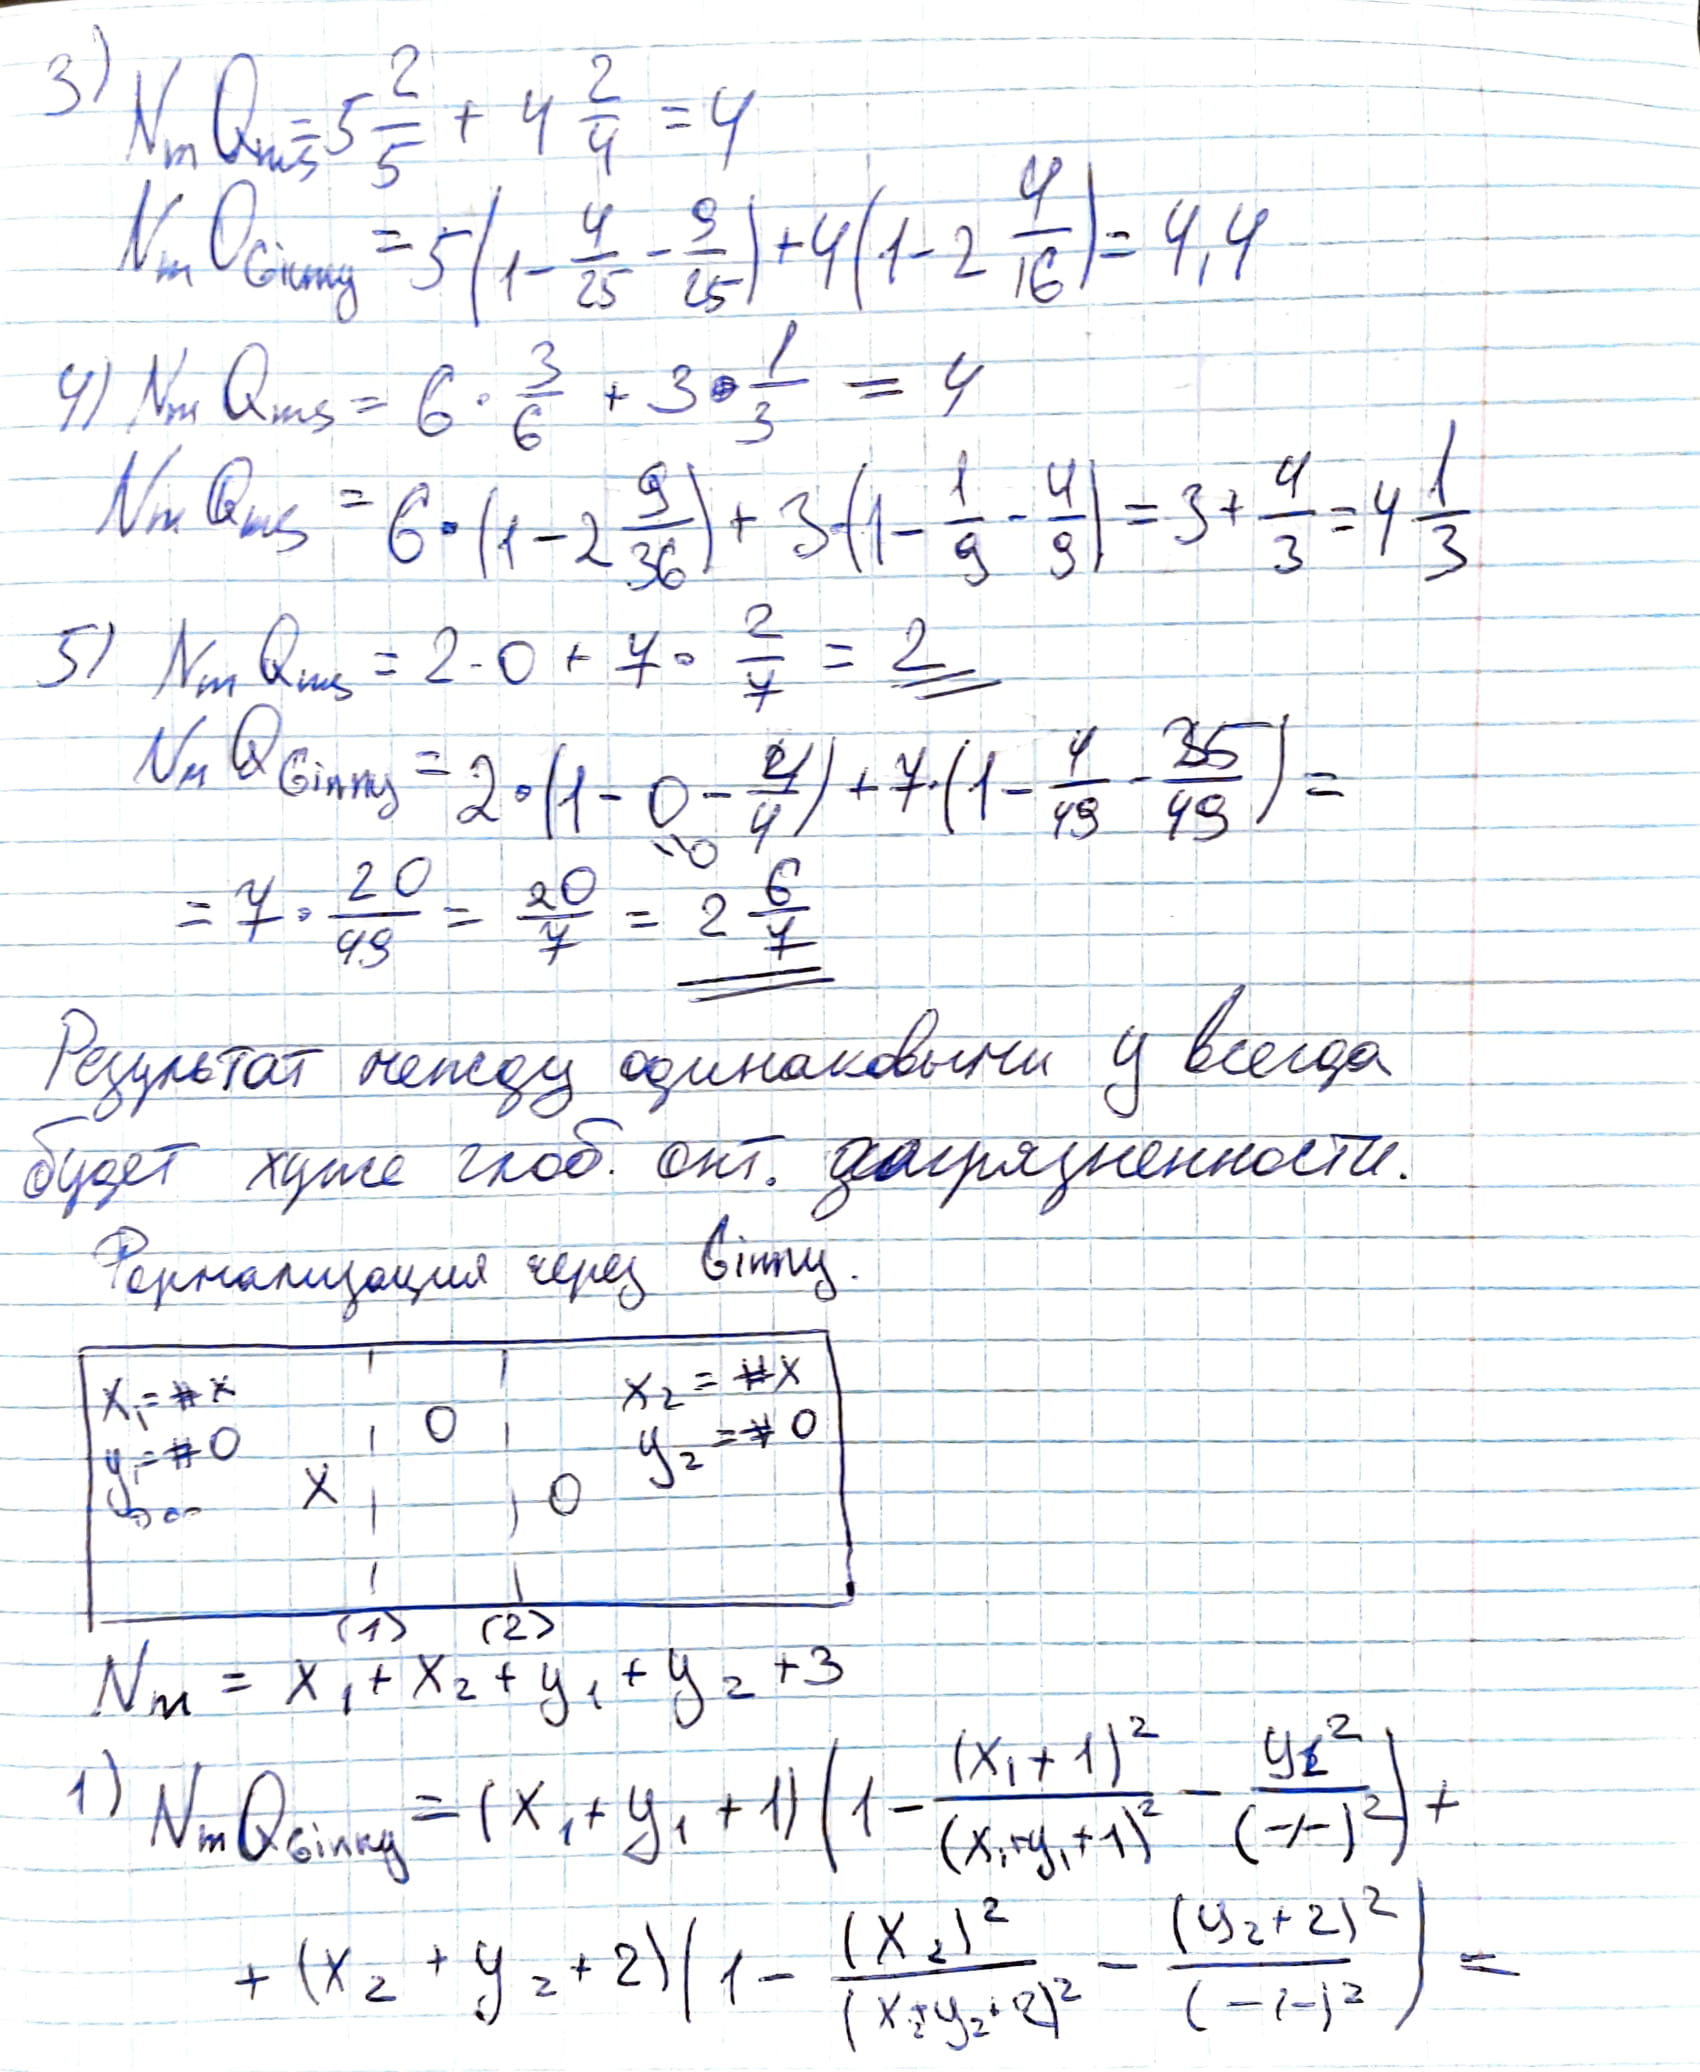 3) NmQms = 5 2/5 + 4 2/4 = 4
NmQGinny = 5(1 - 4/25 - 9/25) + 4(1 - 2 4/16) = 4,4
4) NmQms = 6 · 3/6 + 3 · 1/3 = 4
NmQms = 6 · (1 - 2 9/36) + 3 · (1 - 1/9 - 4/9) = 3 + 4/3 = 4 1/3
5) NmQms = 2 · 0 + 7 · 2/7 = 2
NmQGinny = 2 · (1 - 0 - 4/4) + 7 · (1 - 4/49 - 25/49) =
= 7 · 20/49 = 20/7 = 2 6/7
Результат между одинаковыми y всегда
будет хуже глоб. опт. загрязненности.
Формализация через Ginny.
x1 = #x
y1 = #0
x2 = #x
y2 = #0
0
X
0
(1) (2)
Nm = x1 + x2 + y1 + y2 + 3
1) NmQGinny = (x1 + y1 + 1)(1 - (x1 + 1)²/(x1 + y1 + 1)² - y1²/(-//-)²) +
+ (x2 + y2 + 2)(1 - (x2)²/(x2 + y2 + 2)² - (y2 + 2)²/(-//-)²) =